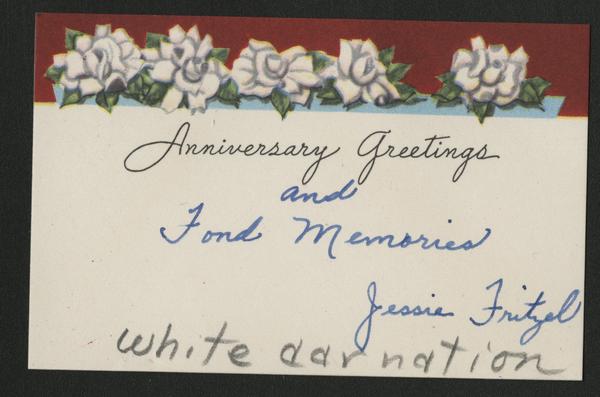 Anniversary Greetings
and
Fond Memories
Jessie Fritzel
white carnation